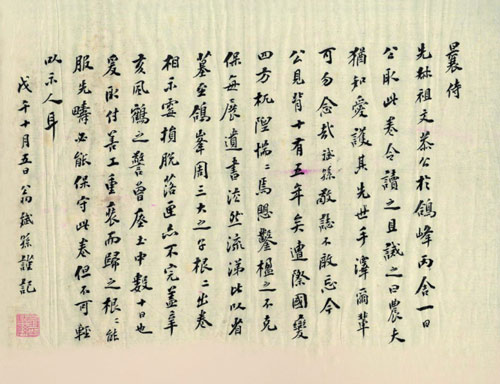 曩侍
先叔祖文恭公於鴿峰丙舍一日
公取此卷令讀之且誡之曰農夫
猶知愛護其先世手澤爾輩
可勿念哉斌孫敬誌不敢忘今
公見背十有五年矣遭際國變
四方杌隉惴〻焉愳鑿楹之不克
保每展遺書泫然流涕比以省
墓至鴿峯周三大之子根〻出卷
相示霉損脫落匣亦不完蓋辛
亥風鶴之警曾瘞土中數十日也
爰取付善工重裝而歸之根〻能
服先疇必能保守此卷但不可輕
以示人耳
戊午十月五日翁斌孫謹記